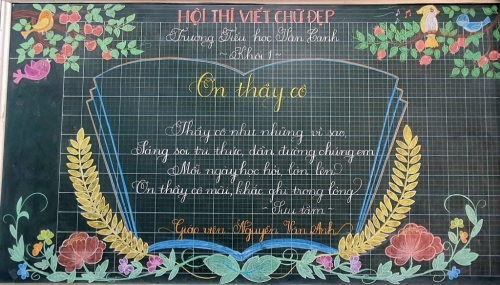 HỘI THI VIẾT CHỮ ĐẸP
Trường Tiểu học Vân Canh
- Khối 1 -
Ơn thầy cô
Thầy cô như những vì sao,
Sáng soi tri thức, dẫn đường chúng em
Mỗi ngày học hỏi, lớn lên
Ơn thầy cô mãi, khắc ghi trong lòng
- Sưu tầm -
Giáo viên Nguyễn Vân Anh